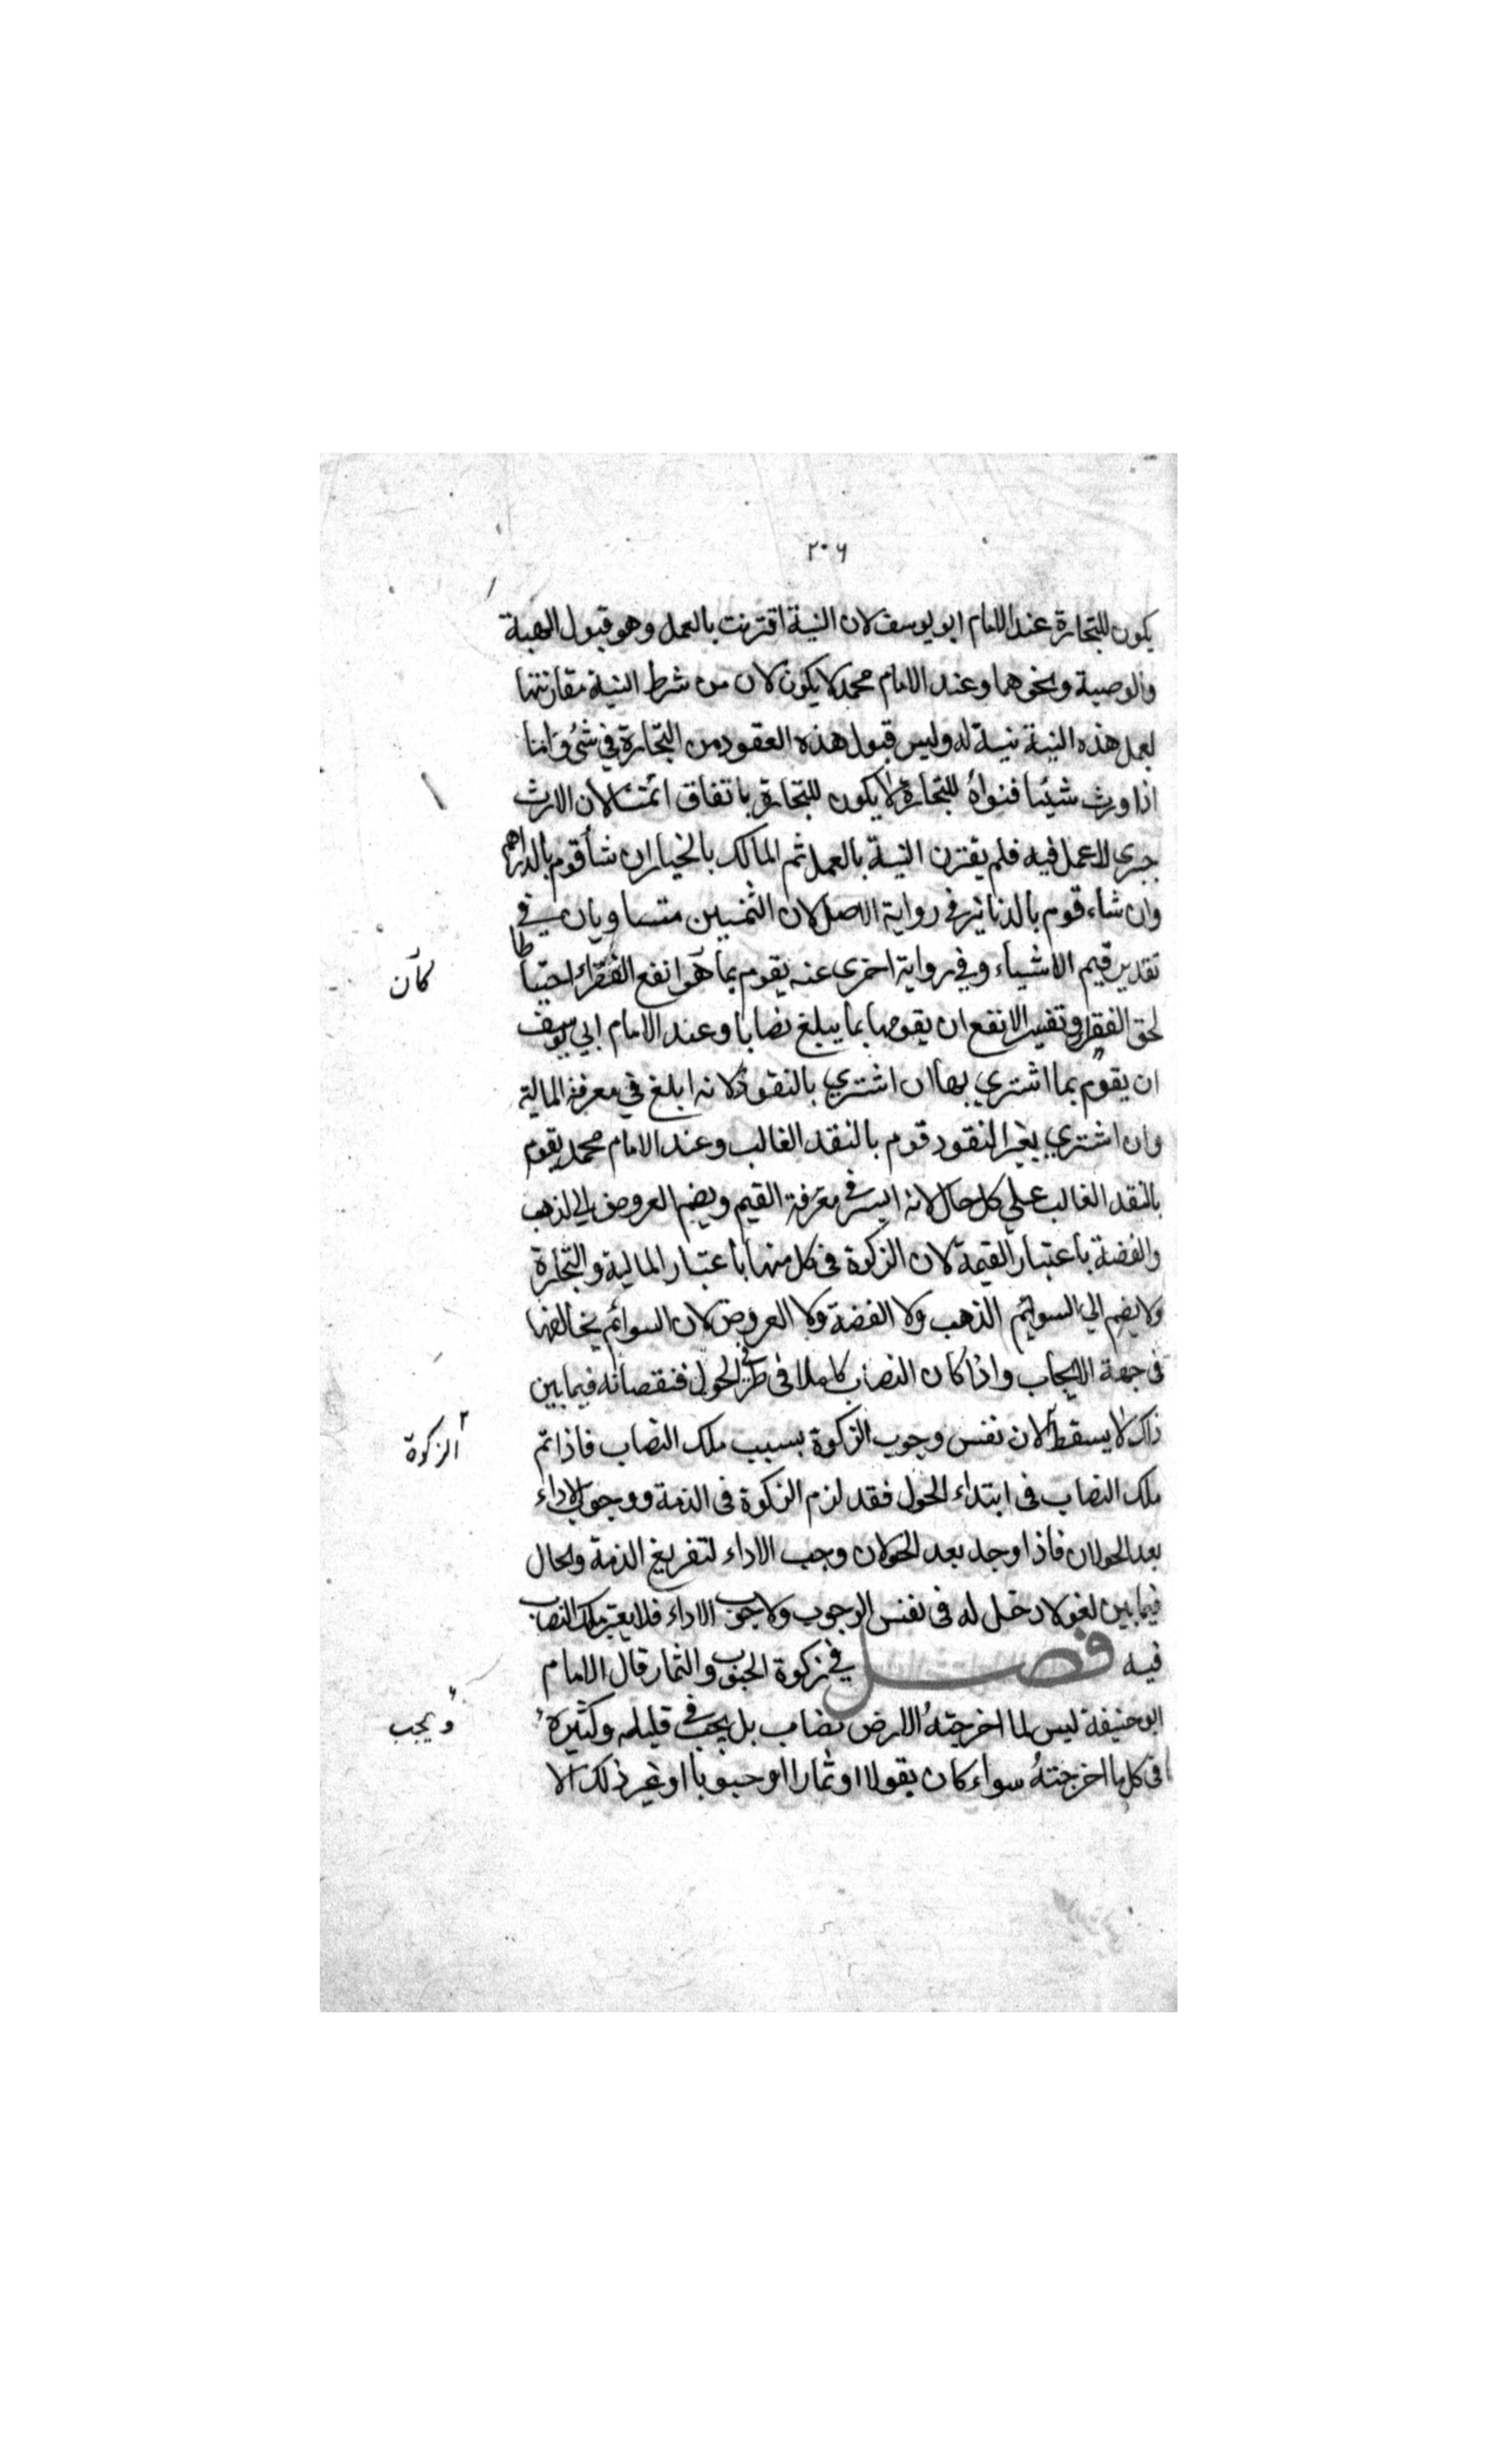 ٢٠٦
يكون للتجارة عند الامام ابو يوسف لان النية اقترنت بالعمل وهو قبول الهبة
والوصية ونحوهما وعند الامام محمد لا يكون لان من شرط النية مقارنتها
لعمل هذه النية نية له وليس قبول هذه العقود من التجارة في شئ واما
اذا ورث شيئا فنواه للتجارة لا يكون للتجارة باتفاق ائمتنا لان الارث
جبرى لا عمل فيه فلم يقترن النية بالعمل ثم المالك بالخيار ان شأ قوم بالدراهم
وان شاء قوم بالدنانير في رواية الاصل لان الثمنين متساويان في
تقدير قيم الاشياء وفي رواية اخرى عنه يقوم بما هو انفع الفقراء احتياطا
كان
لحق الفقراء وتفسير الانفع ان يقومها بما يبلغ نصابا وعند الامام ابي يوسف
ان يقوم بما اشتري بها ان اشتري بالنقود لانه ابلغ في معرفة المالية
وان اشتري بغير النقود قوم بالنقد الغالب وعند الامام محمد يقوم
بالنقد الغالب علي كل حال لانه ايسر في معرفة القيم ويضم العروض الي الذهب
والفضة باعتبار القيمة لان الزكوة فى كل منها باعتبار المالية والتجارة
ولا يضم الي السوائم الذهب ولا الفضة ولا العروض لان السوائم يخالفها
فى جهة الايجاب واذا كان النصاب كاملا فى طرفي الحول فنقصانه فيما بين
ذلك لا يسقط لان نفس وجوب الزكوة بسبب ملك النصاب فاذا تم
الزكوة
ملك النصاب فى ابتداء الحول فقد لزم الزكوة فى الذمة ووجوب الاداء
بعد الحولان فاذا وجد بعد الحولان وجب الاداء لتفريغ الذمة ولحال
فيما بين لغو لا دخل له فى نفس الوجوب ولا وجوب الاداء فلا يعتبر ملك النصاب
فيه فصل في زكوة الحبوب والثمار قال الامام
ابو حنيفة ليس لما اخرجته الارض نصاب بل يجب في قليله وكثيره
ويجب
فى كل ما اخرجته سواء كان بقولا او ثمارا او حبوبا او غير ذلك الا